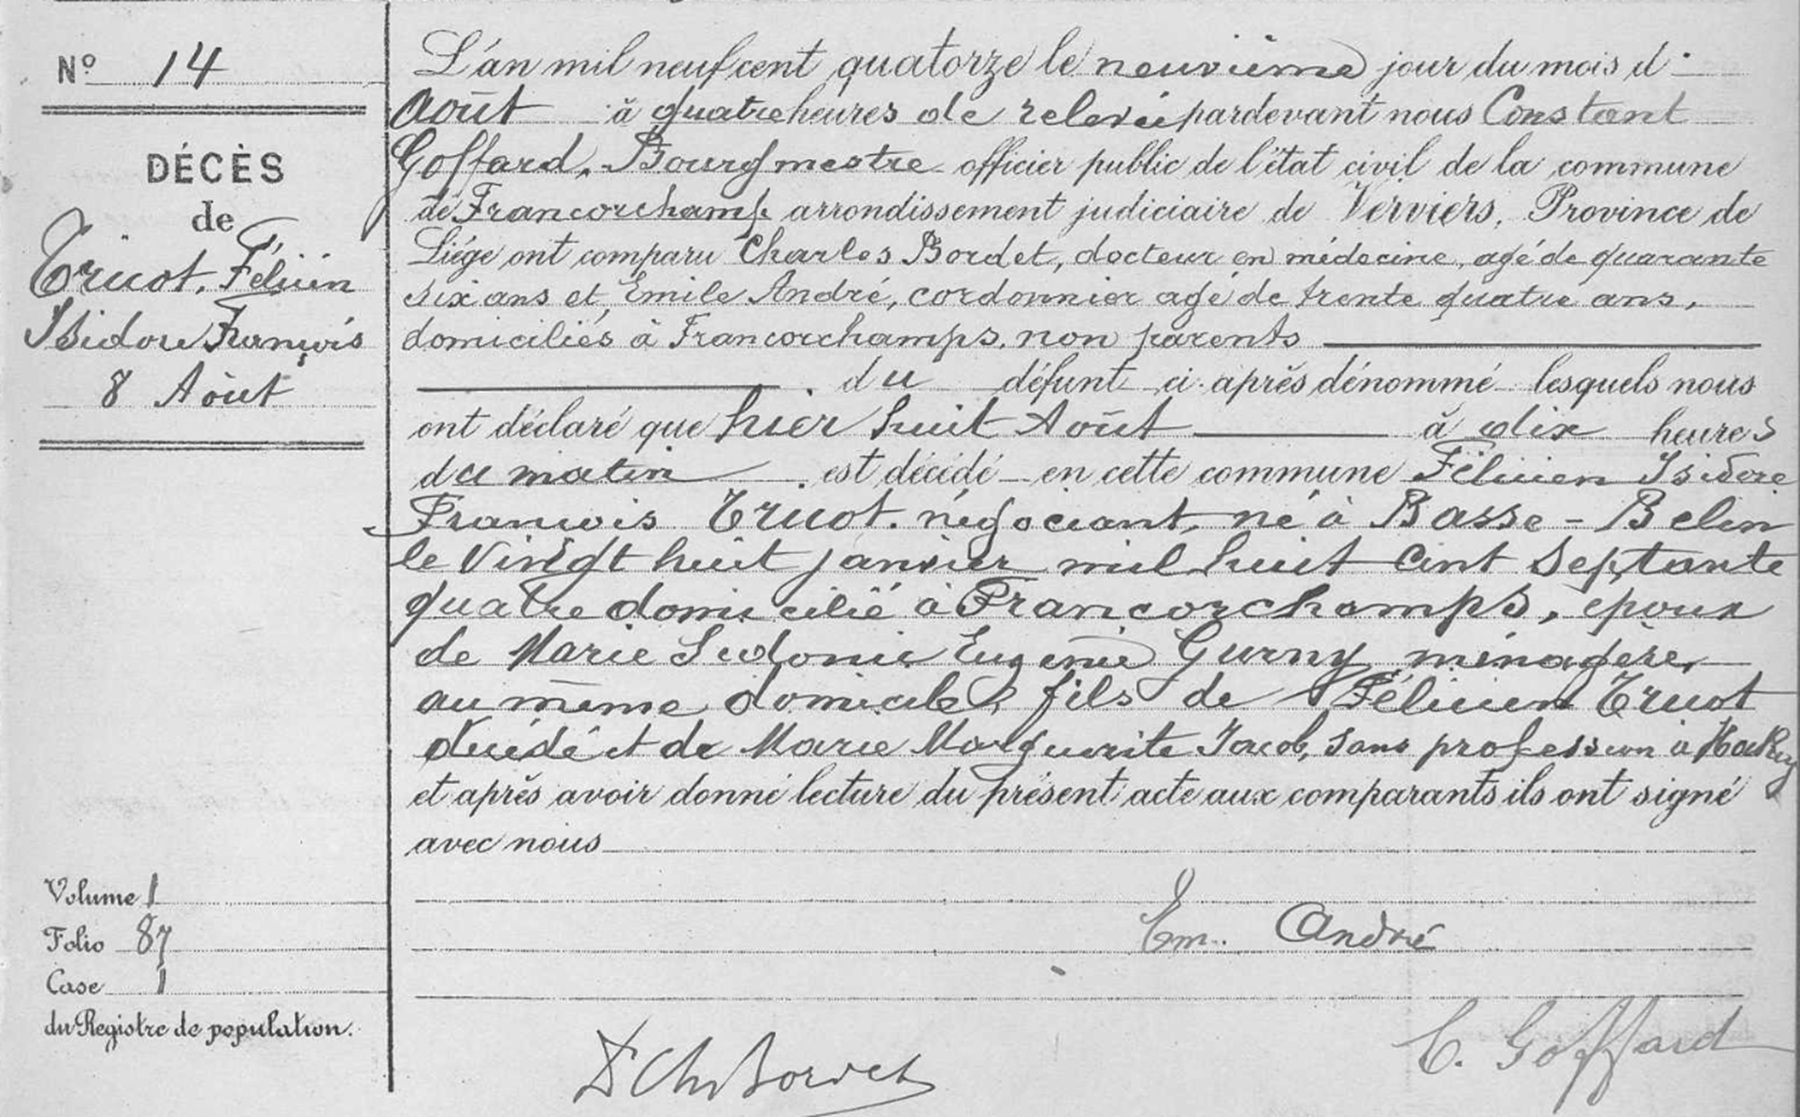 Nº 14
DÉCÈS
de
Tricot, Félicien
Isidore François
8 Août
L'an mil neuf cent quatorze le neuvième jour du mois d'
Août à quatre heures de relevée pardevant nous Constant
Goffard, Bourgmestre officier public de l'état civil de la commune
de Francorchamps arrondissement judiciaire de Verviers, Province de
Liége ont comparu Charles Bordet, docteur en médecine, agé de quarante
six ans et Emile André, cordonnier agé de trente quatre ans,
domiciliés à Francorchamps, non parents
du défunt ci-après dénommé lesquels nous
ont déclaré que hier huit Août à dix heures
du matin est décédé en cette commune Félicien Isidore
François Tricot, négociant, né à Basse-Belin
le vingt huit janvier mil huit cent septante
quatre domicilié à Francorchamps, époux
de Marie Sidonie Eugénie Gurny ménagère,
au même domicile, fils de Félicien Tricot
décédé et de Marie Marguerite Jacob, sans profession à
et après avoir donné lecture du présent acte aux comparants ils ont signé
avec nous
Volume 1
Folio 87
Case 1
du Registre de population.
Em. André
D Ch Bordet
C. Goffard